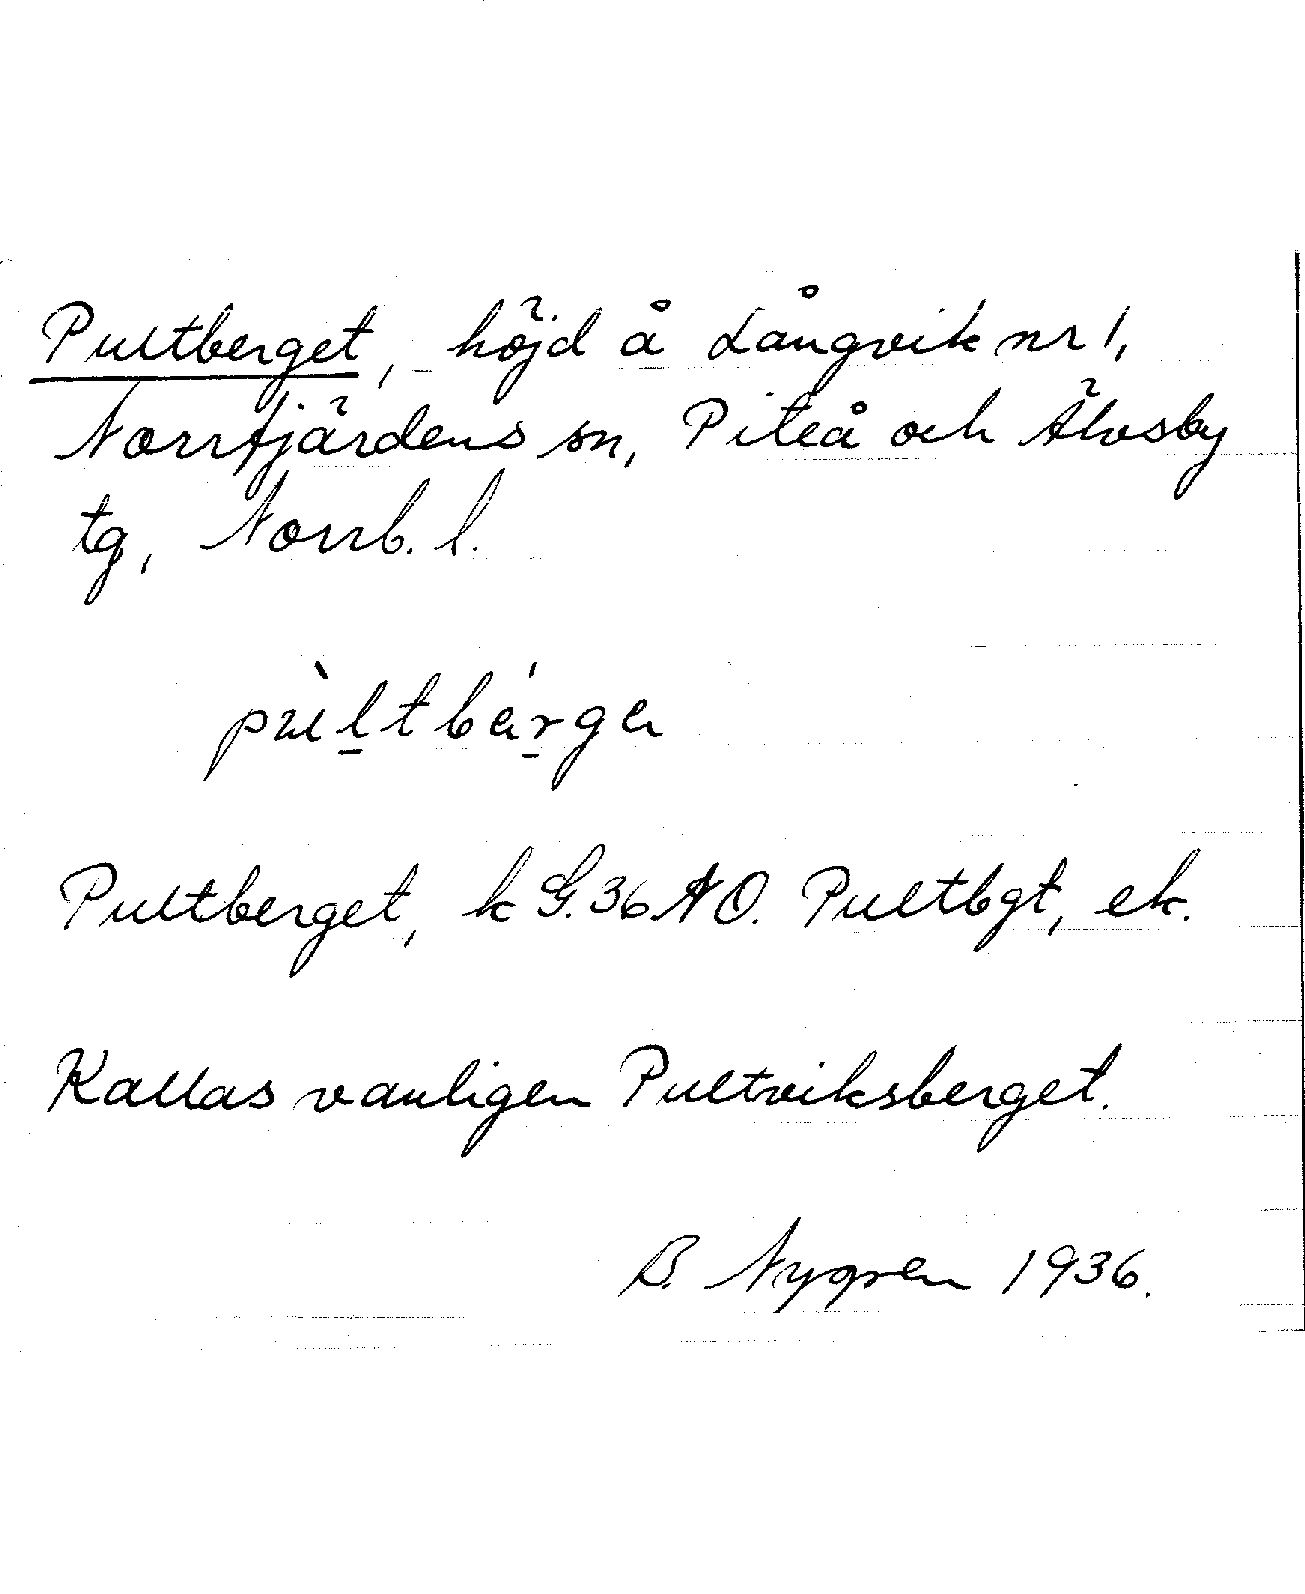 Pultberget, höjd å Långvik nr 1,
Norrfjärdens sn, Piteå och Älvsby
tg, Norrb. l.
pùl̠tbár̠ga
Pultberget, k G. 36 NO. Pultbgt, ek.
Kallas vanligen Pultviksberget.
B. Nygren 1936.